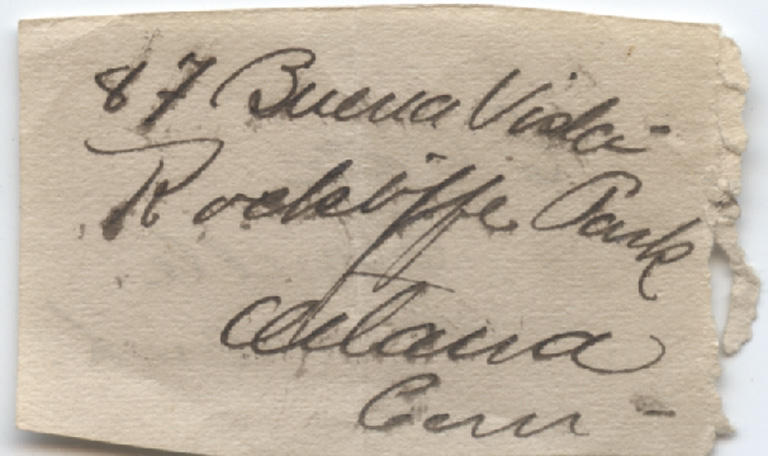 87 Buena Vista
Rockliffe Park
Ottawa
Can -